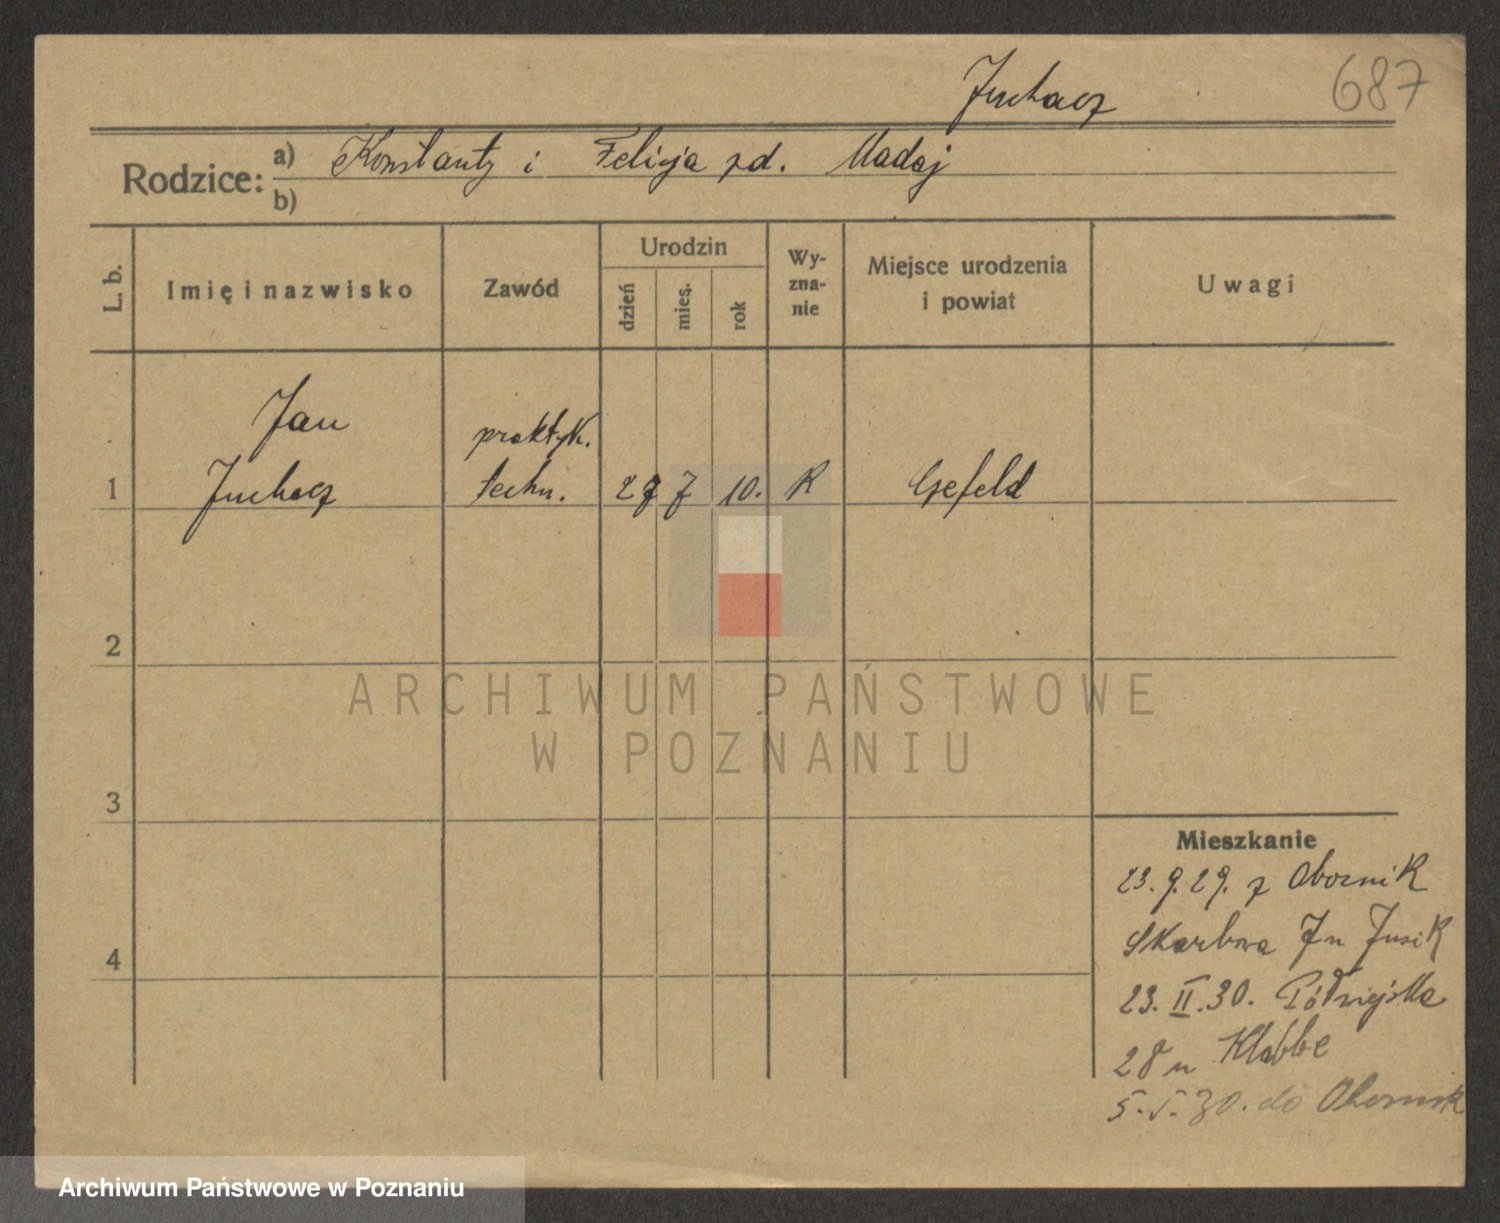 Juchacz
687
Rodzice: a) Konstanty i Felicja zd. Madaj
b)
L. b.
Imię i nazwisko
Zawód
Urodzin
dzień
mies.
rok
Wy-
zna-
nie
Miejsce urodzenia
i powiat
Uwagi
Jan
praktyk.
1 Juchacz techn. 27 7 10. R Gefeld
2
3
4
ARCHIWUM PAŃSTWOWE
W POZNANIU
Mieszkanie
23.9.29. z Obornik
Skarbowa
23.II.30. Półwiejska
28 u Klabbe
5.V.30. do Obornik
Archiwum Państwowe w Poznaniu